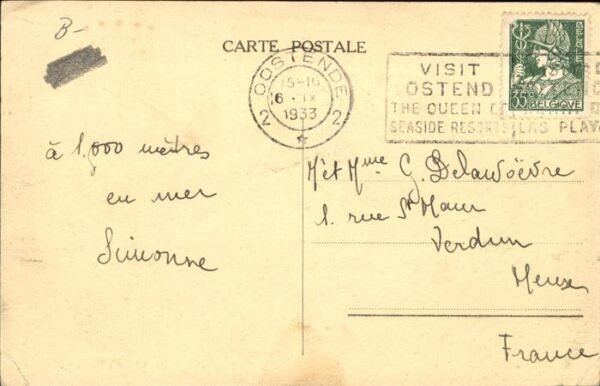 B-
CARTE POSTALE
OOSTENDE
15-16
6 · IX
1933
2 2
VISIT
OSTEND
THE QUEEN
SEASIDE RESORT
LAS PLAY
35
BELGIQUE
à 1,000 mètres
en mer
Simonne
M et Mme G. Delawoëvre
1. rue St Maur
Verdun
Meuse
France